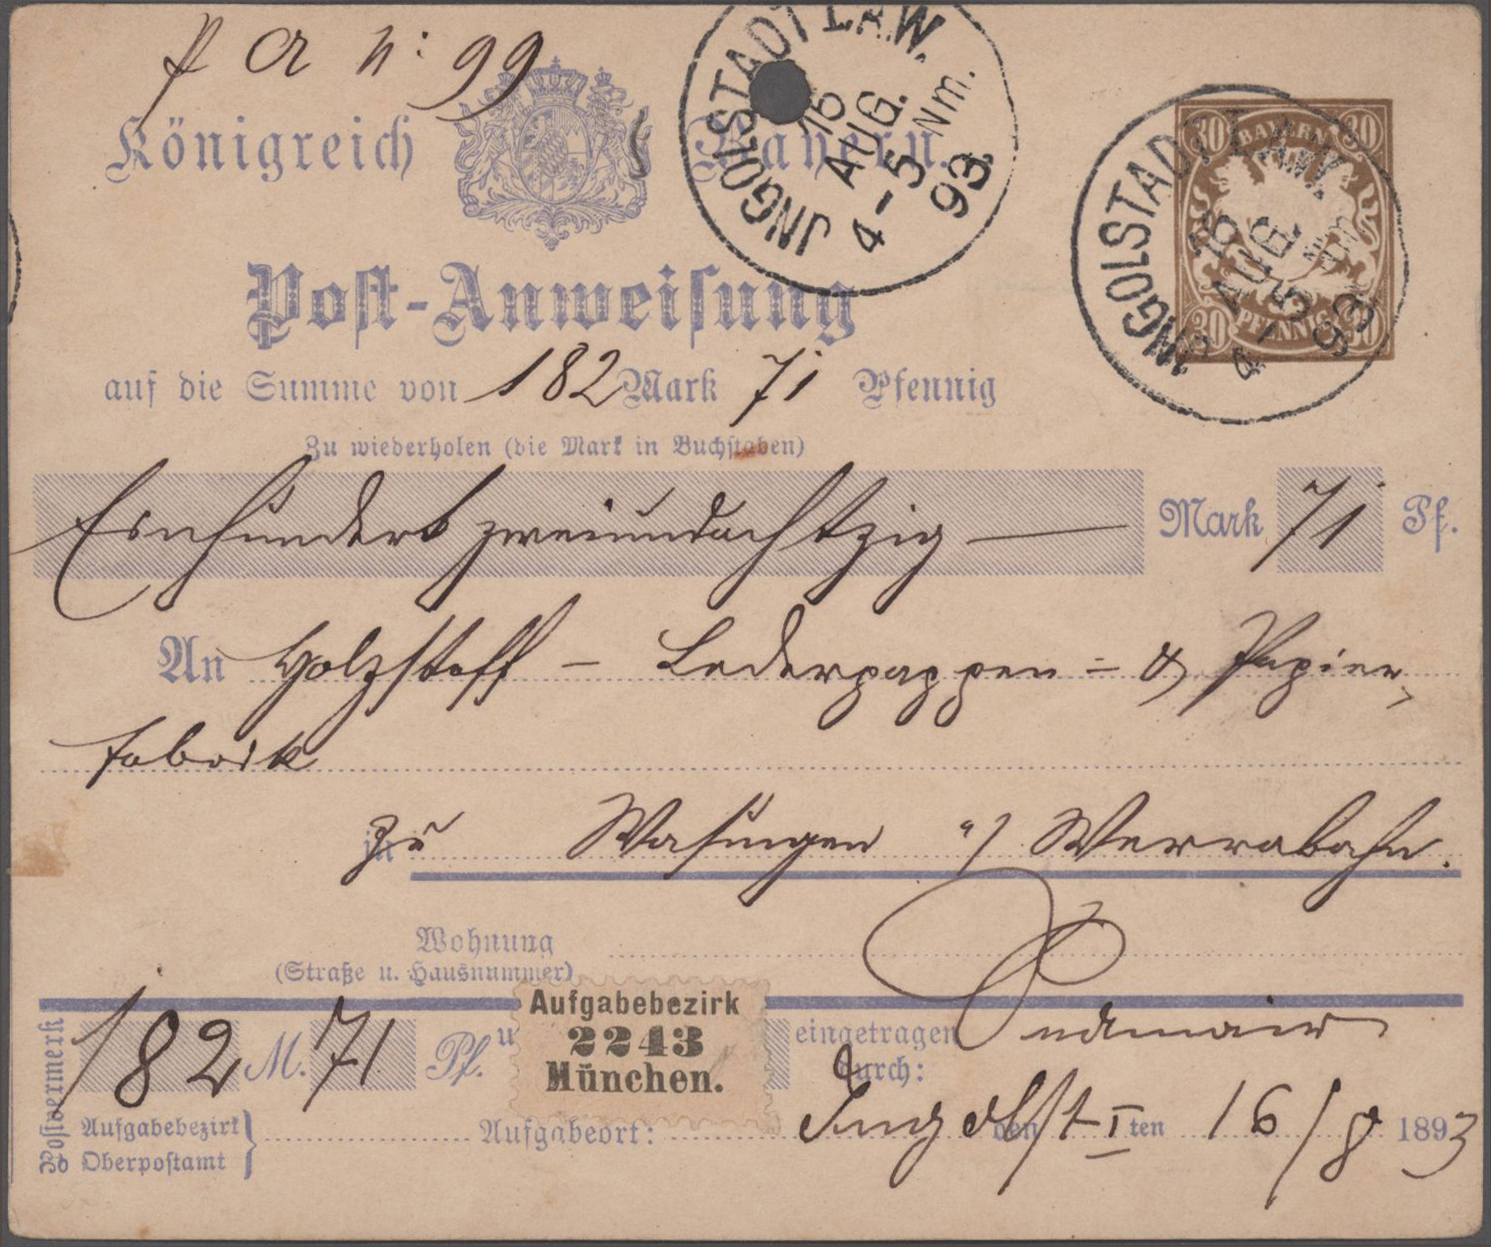 p a n: 99
Königreich Bayern.
JNGOLSTADT I. A.W.
16
AUG.
4-5 Nm.
93.
30 BAYERN 30
30 PFENNIG 30
JNGOLSTADT I. A.W.
16
AUG.
4-5 Nm.
93
Post-Anweisung
auf die Summe von 182 Mark 71 Pfennig
Zu wiederholen (die Mark in Buchstaben)
Einhundert zweiundachtzig — Mark 71 Pf.
An Holzstoff - Lederpappen- & Papier
fabrik
in zu Wasungen a/ Werrabahn.
Wohnung
(Straße u. Hausnummer)
Postvermerk
182 M. 71 Pf.
Aufgabebezirk
2243
München.
eingetragen
durch:
Aufgabebezirk
Oberpostamt
Aufgabeort: Ingolst I den ten 16/8 1893